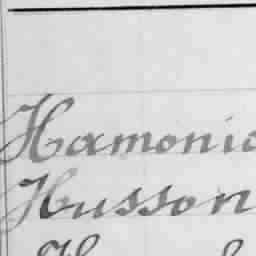 Hamonic
Husson